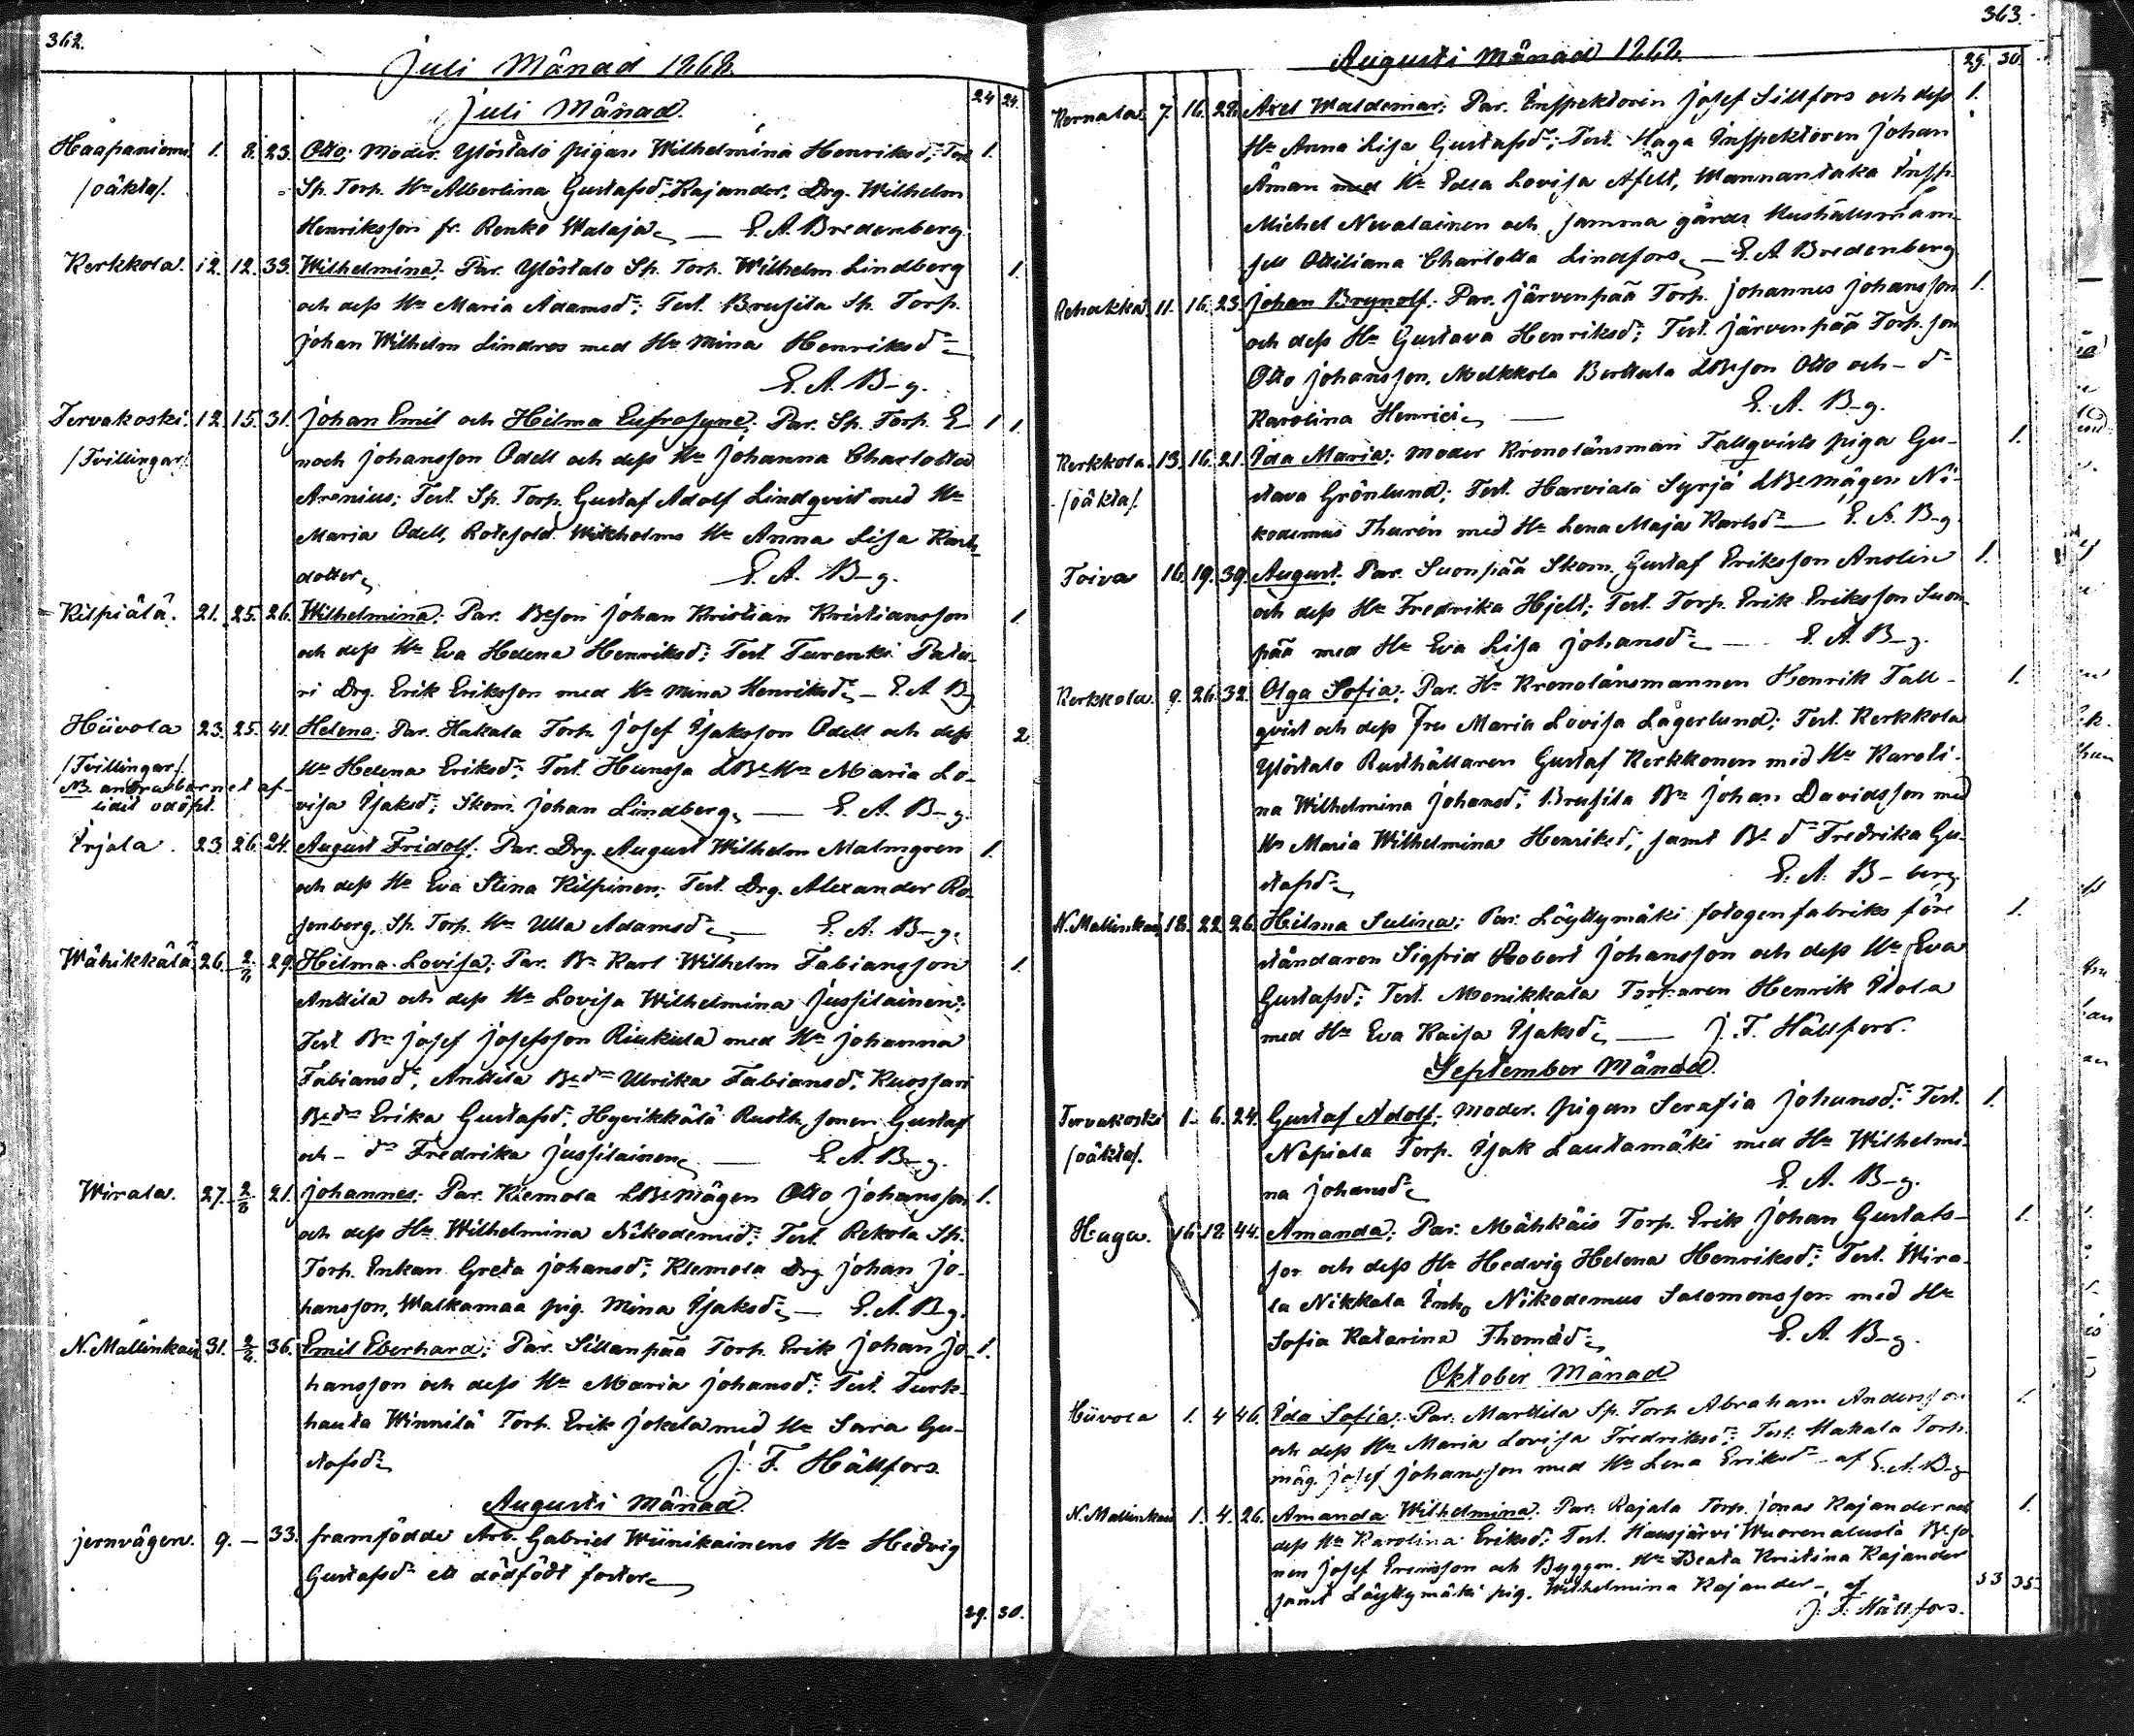 362.
Juli Månad 1868.
24 24.
Juli Månad.
Haapaniemi 1. 8. 23. Otto; Moder. Ylöstalo pigan Wilhelmina Henriksd:r; Test. 1.
/oäkta/. Sp. Torp. H:u Albertina Gustafsd:r Kajander, Drg. Wilhelm
Henriksson fr. Renko Walaja — E. A. Bredenberg.
Kerkkola. 12. 12. 33. Wilhelmina; Par. Ylöstalo Sp. Torp. Wilhelm Lindberg 1.
och dess H:u Maria Adamsd:r; Test. Brusila Sp. Torp.
Johan Wilhelm Lindros med H:u Mina Henriksd:r
E. A. B-g.
Tervakoski. 12. 15. 31. Johan Emil och Hilma Eufrosyne; Par. Sp. Torp. E- 1 1.
/Tvillingar/. noch Johansson Odell och dess H:u Johanna Charlotta
Arenius; Test. Sp. Torp. Gustaf Adolf Lindqvist med H:u
Maria Odell, Rotesold. Wikholms H:u Anna Lisa Karls-
dotter E. A. B-g.
Kilpiälä. 21. 25. 26. Wilhelmina; Par. B:eson Johan Kristian Kristiansson 1.
och dess H:u Eva Helena Henriksd:r; Test. Turenki Pata-
ri Drg. Erik Eriksson med H:u Mina Henriksd:r — E. A. B-g
Hiivola 23. 25. 41. Helena; Par. Hakala Torp. Josef Isaksson Odell och dess 2
/Tvillingar/. H:u Helena Eriksd:r; Test. Hunssa LB:e H:u Maria Lo-
NB. andra barnet af- visa Isaksd:r; Skom. Johan Lindberg — E. A. B-g.
lidit odöpt.
Irjala. 23. 26. 24. August Fridolf; Par. Drg. August Wilhelm Malmgren 1.
och dess H:u Eva Stina Kilpinen; Test. Drg. Alexander Ro-
senberg, Sp. Torp. H:u Ulla Adamsd:r — E. A. B-g.
Wähikkälä 26. 2/8 29. Hilma Lovisa; Par. B:n Karl Wilhelm Fabiansson 1.
Anttila och dess H:u Lovisa Wilhelmina Jussilainen;
Test. B:n Josef Josefsson Riukula med H:u Johanna
Fabiansd:r, Anttila B:ed:r Ulrika Fabiansd:r, Kuossari
B:ed:r Erika Gustafsd:r, Hyvikkälä Rusth. sonen Gustaf
och - d:r Fredrika Jussilainen — E. A. B-g.
Wirala. 27. 2/8 21. Johannes; Par. Klemola LB:emågen Otto Johansson 1.
och dess H:u Wilhelmina Nikodemid:r; Test. Rekola Sp.
Torp. Enkan Greta Johansd:r, Klemola Drg. Johan Jo-
hansson, Walkamaa pig. Mina Isaksd:r — E. A. B-g.
N. Mallinkais 31. 2/8. 36. Emil Eberhard; Par. Sillanpää Torp. Erik Johan Jo- 1.
hansson och dess H:u Maria Johansd:r; Test. Turk-
hauta Winnilä Torp. Erik Jokela med H:u Sara Gu-
stafsd:r J. F. Hällfors.
Augusti Månad.
Jernvägen. 9. — 33. framfödde Arb. Gabriel Wiinikainens H:u Hedvig
Gustafsd:r ett dödfödt foster
29. 30.
363.
Augusti Månad 1868.
29. 30.
Kernala. 7. 16. 28. Axel Waldemar; Par. Inspektoren Josef Sillfors och dess 1.
H:u Anna Lisa Gustafsd:r; Test. Haga Inspektoren Johan
Åman med H:u Edla Lovisa Afelt, Mannantaka Insp.
Michel Nevalainen och samma gårds Hushållsmam-
sell Ottiliana Charlotta Lindfors — E. A. Bredenberg
Rehakka 11. 16. 23. Johan Brynolf; Par. Järvenpää Torp. Johannes Johansson 1.
och dess H:u Gustava Henriksd:r; Test. Järvenpää Torp. son
Otto Johansson, Melkkola Berttula LB:eson Otto och - d:r
Karolina Henrici — E. A. B-g.
Kerkkola 13. 16. 21. Ida Maria; Moder Kronolänsman Tallqvists piga Gu- 1.
/oäkta/. stava Grönlund; Test. Harviala Syrjä LB:emågen Ni-
kodemus Thurén med H:u Lena Maja Karlsd:r — E. A. B-g.
Toiva 16. 19. 39. August; Par. Suonpää Skom. Gustaf Eriksson Anolin 1.
och dess H:u Fredrika Hjelt; Test. Torp. Erik Eriksson Suon-
pää med H:u Eva Lisa Johansd:r — E. A. B-g.
Kerkkola. 9. 26. 32. Olga Sofia; Par. H:r Kronolänsmannen Henrik Tall- 1.
qvist och dess Fru Maria Lovisa Lägerlund; Test. Kerkkola
Ylöstalo Rusthållaren Gustaf Kerkkonen med H:u Karoli-
na Wilhelmina Johansd:r, Brusila B:n Johan Davidsson med
H:u Maria Wilhelmina Henriksd:r, samt B:e d:r Fredrika Gu-
stafsd:r E. A. B-berg.
N. Mallinkais 18. 22. 26. Hilma Sulina; Par. Löyttymäki fotogenfabriks före 1.
ståndaren Sigfrid Robert Johansson och dess H:u Eva
Gustafsd:r; Test. Monikkala Torparen Henrik Iiola
med H:u Eva Kaisa Isaksd:r — J. F. Hällfors.
September Månad.
Tervakoski 1. 6. 24. Gustaf Adolf; Moder. pigan Serafia Johansd:r; Test. 1.
/oäkta/. Napiala Torp. Isak Lautamäki med H:u Wilhelmi-
na Johansd:r E. A. B-g.
Haga. 16 18 44. Amanda; Par. Mähkäis Torp. Erik Johan Gustafs- 1.
son och dess H:u Hedvig Helena Henriksd:r; Test. Wira-
la Nikkala Inh. Nikodemus Salomonsson med H:u
Sofia Katarina Thomæd:r E. A. B-g.
Oktober Månad
Hiivola 1. 4 46. Ida Sofia; Par. Marttila Sp. Torp. Abraham Andersson 1.
och dess H:u Maria Lovisa Fredriksd:r; Test. Hakala Torp.
måg Josef Johansson med H:u Lena Eriksd:r - af E. A. B-g
N. Mallinkais 1. 4. 26. Amanda Wilhelmina. Par. Rajala Torp. Jonas Kajander och 1.
dess H:u Karolina Eriksd:r; Test. Hausjärvi Wuorenalusta B:eso-
nen Josef Ericsson och Byggm. H:u Beata Kristina Kajander
samt Löyttymäki pig. Wilhelmina Kajander - af 33 35.
J. F. Hällfors.